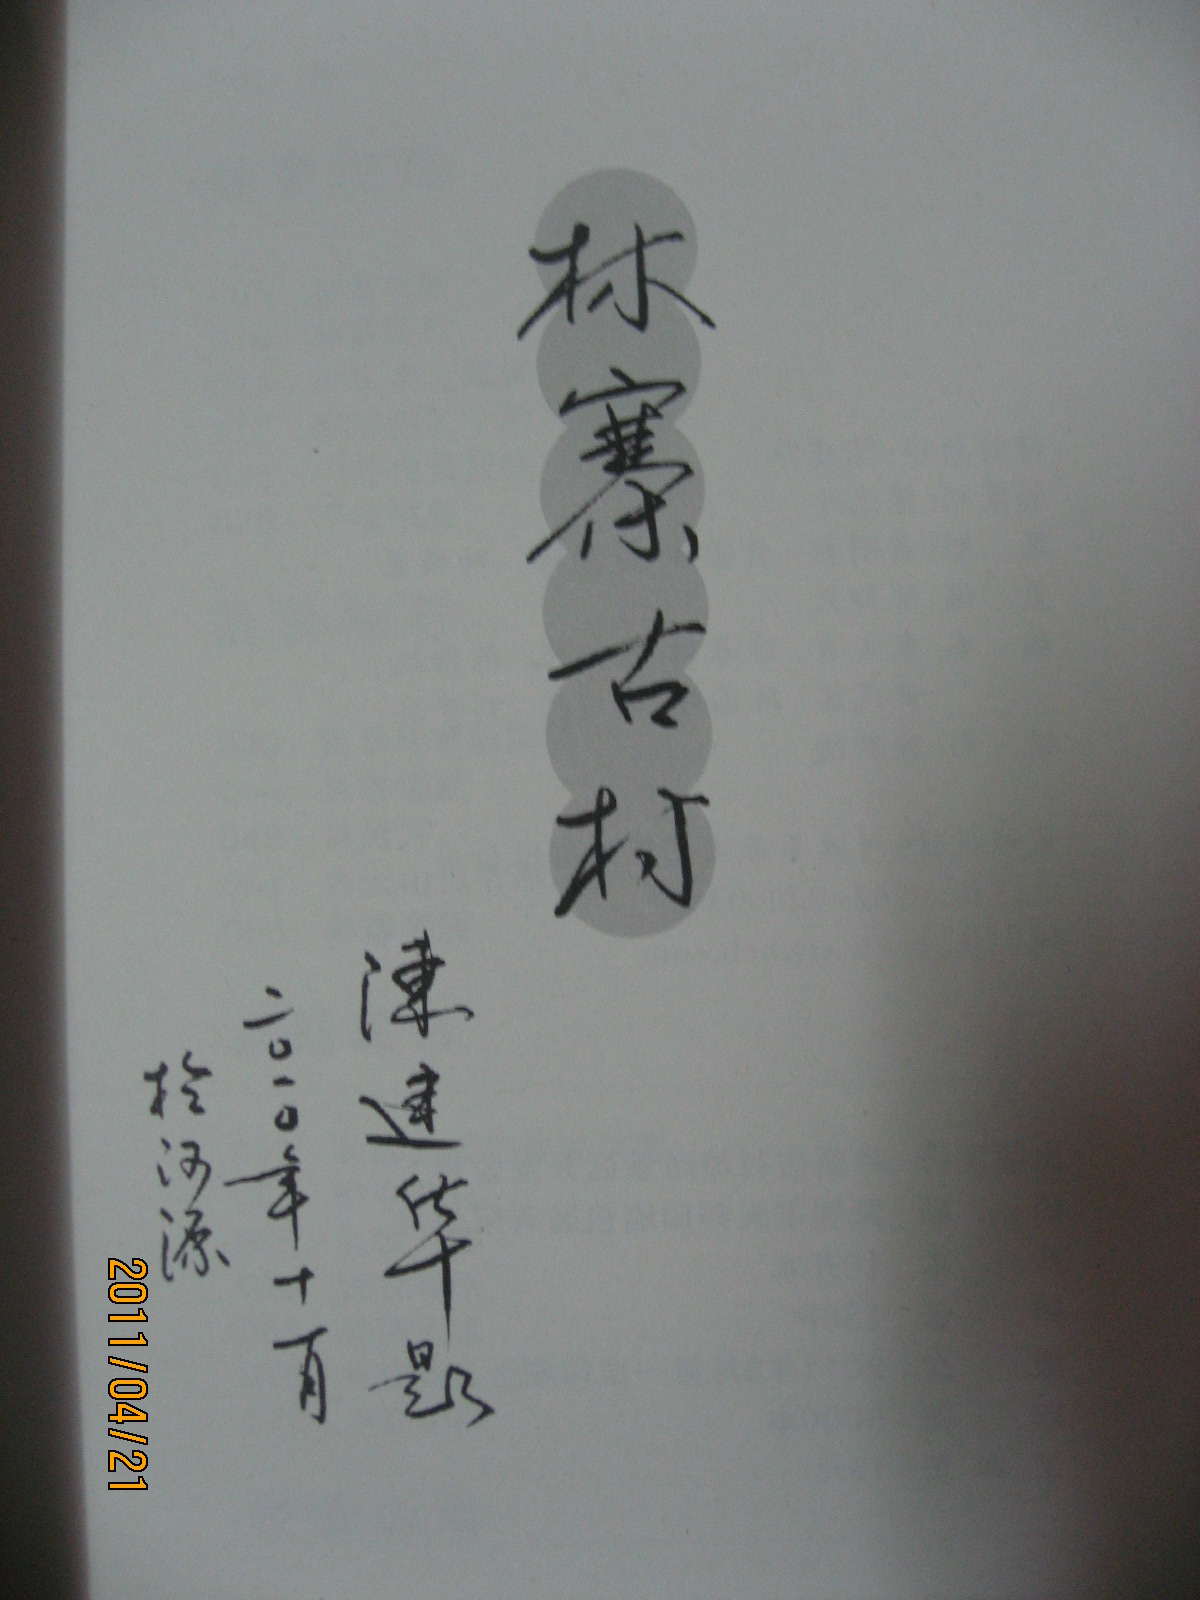 林寨古村
陳建华題
二〇一〇年十月
於河源
2011/04/21